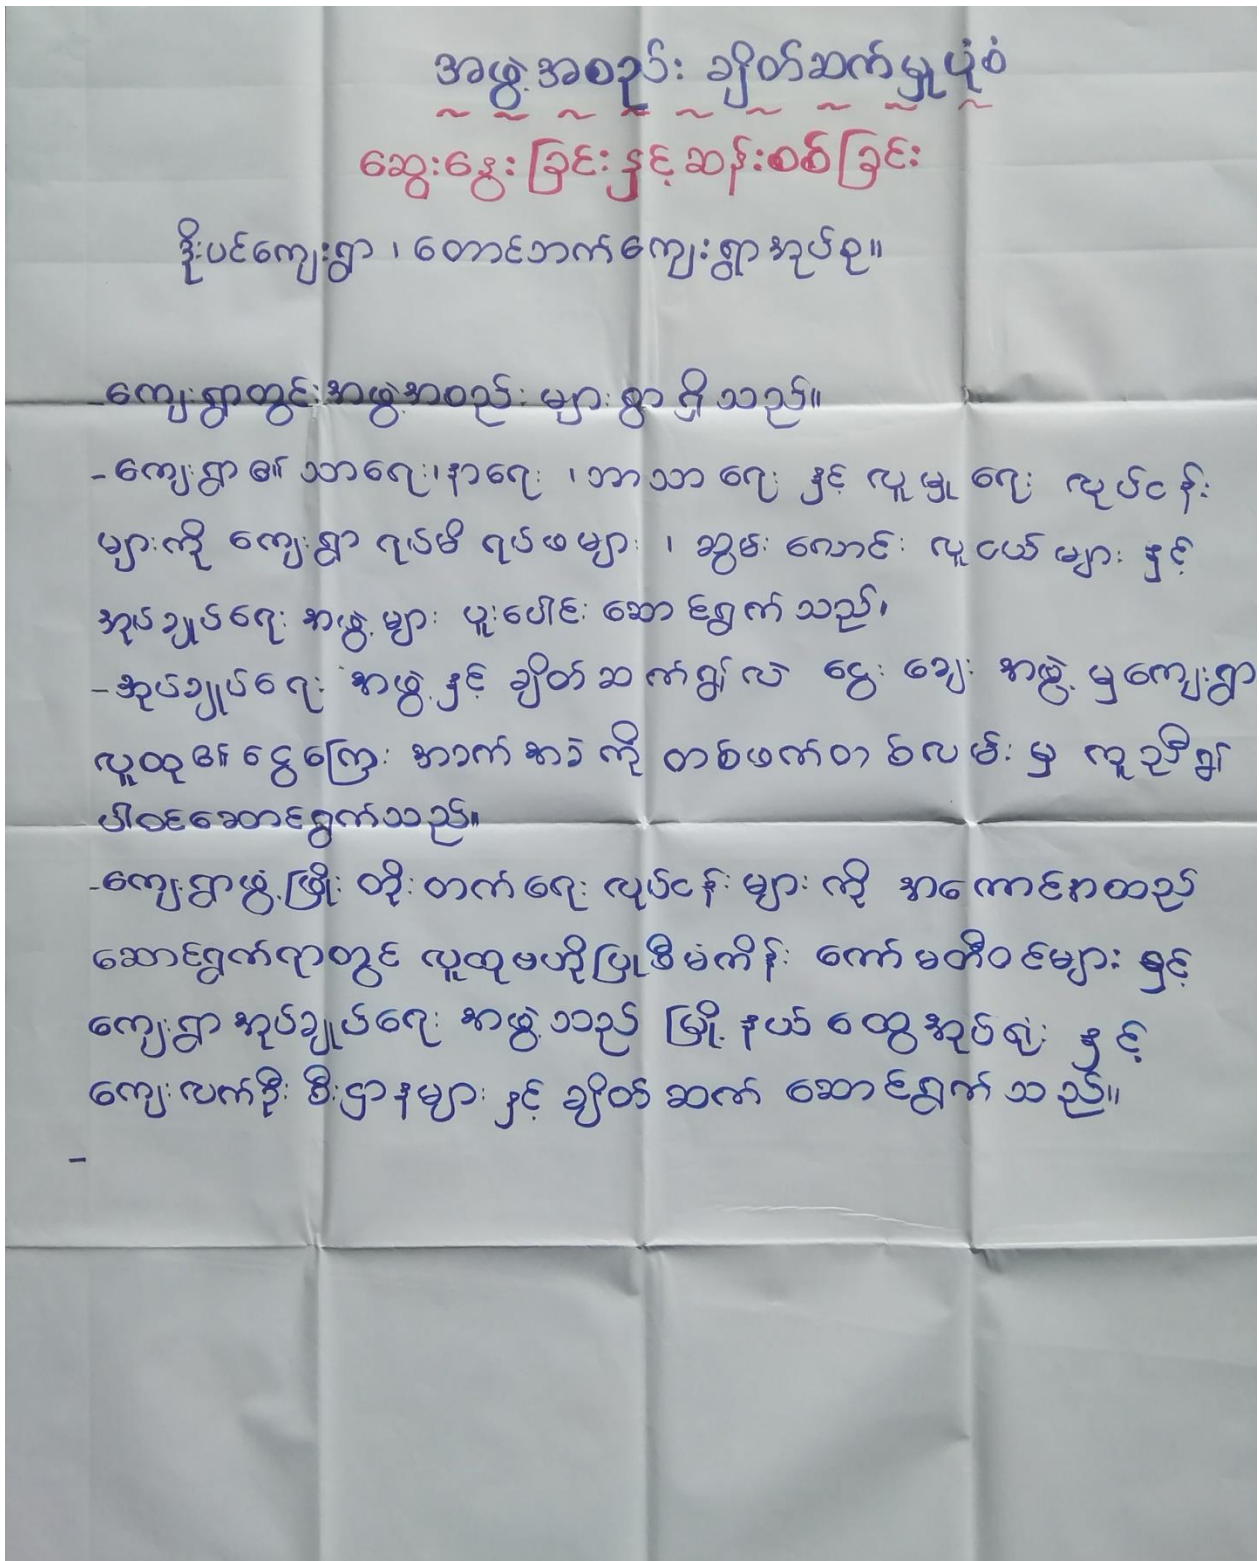 အဖွဲ့အစည်း ချိတ်ဆက်မှုပုံစံ
ဆွေးနွေးခြင်းနှင့်ဆန်းစစ်ခြင်း
ဒိုးပင်ကျေးရွာ၊ တောင်ဘက်ကျေးရွာအုပ်စု။
-ကျေးရွာတွင်းအဖွဲ့အစည်းများစွာရှိသည်။
-ကျေးရွာ၏ သာရေး၊နာရေး ၊ဘာသာရေး နှင့် လူမှုရေး လုပ်ငန်း
များကို ကျေးရွာ ရပ်မိ ရပ်ဖများ ၊ ဆွမ်းလောင်း လူငယ်များ နှင့်
အုပ်ချုပ်ရေး အဖွဲ့များ ပူးပေါင်း ဆောင်ရွက်သည်၊
-အုပ်ချုပ်ရေး အဖွဲ့နှင့် ချိတ်ဆက်၍လဲ ငွေးချေး အဖွဲ့မှကျေးရွာ
လူထု၏ ငွေကြေး အခက်အခဲကို တစ်ဖက်တစ်လမ်းမှ ကူညီ၍
ပါဝင်ဆောင်ရွက်သည်။
-ကျေးရွာဖွံ့ဖြိုးတိုးတက်ရေး လုပ်ငန်းများကို အကောင်အထည်
ဆောင်ရွက်ရာတွင် လူထုဗဟိုပြုစီမံကိန်း ကော်မတီဝင်များ နှင့်
ကျေးရွာအုပ်ချုပ်ရေး အဖွဲ့သည် မြို့နယ်ထွေအုပ်ရုံး နှင့်
ကျေးလက်ဦးစီးဌာနများ နှင့် ချိတ်ဆက် ဆောင်ရွက်သည်။
-